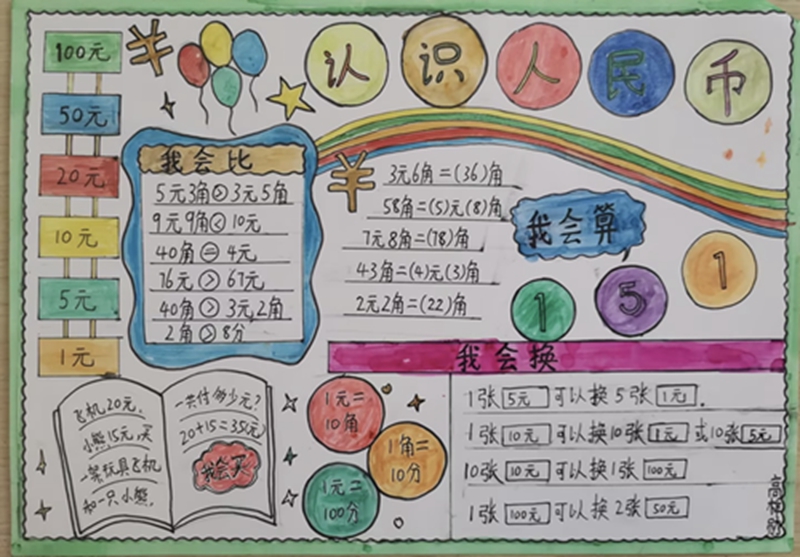 认识人民币
100元
50元
20元
10元
5元
1元
我会比
5元3角>3元5角
9元9角<10元
40角=4元
76元>67元
40角>3元2角
2角>8分
3元6角=(36)角
58角=(5)元(8)角
7元8角=(78)角
43角=(4)元(3)角
2元2角=(22)角
我会算
1
5
1
我会换
1张5元可以换5张1元.
1张10元可以换10张1元或10张5元
10张10元可以换1张100元
1张100元可以换2张50元
飞机20元、
小熊15元,买
一架玩具飞机
和一只小熊,
一共付多少元?
20+15=35(元)
我会买
1元=
10角
1角=
10分
1元=
100分